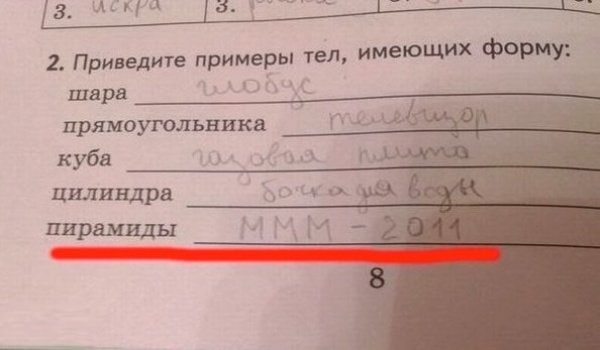 3. искра
3.
2. Приведите примеры тел, имеющих форму:
шара глобус
прямоугольника телевизор
куба газовая плита
цилиндра бочка для воды
пирамиды МММ - 2011
8